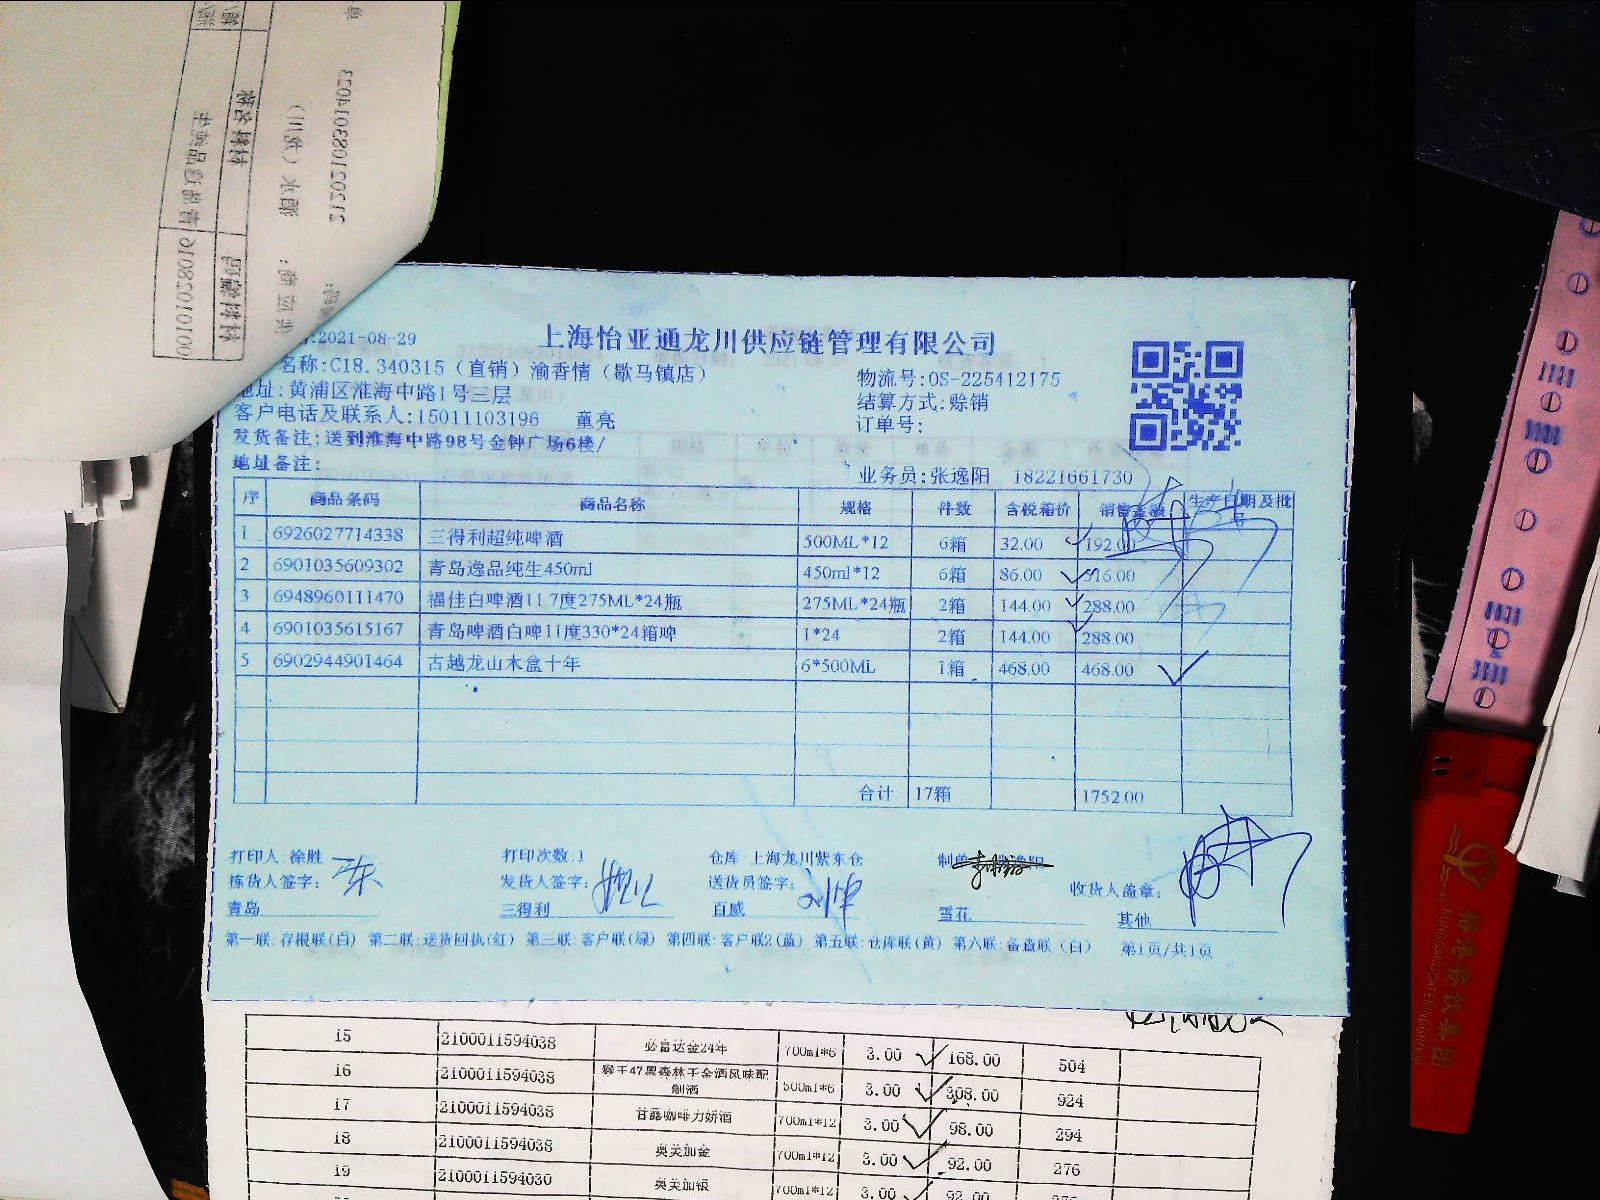 上海怡亚通龙川供应链管理有限公司
:2021-08-29
名称:C18.340315（直销）渝香情（歇马镇店）
物流号:OS-225412175
地址:黄浦区淮海中路1号三层
结算方式:赊销
客户电话及联系人:15011103196 童亮
订单号:
发货备注:送到淮海中路98号金钟广场6楼/
地址备注:
业务员:张逸阳 18221661730
序 商品条码 商品名称 规格 件数 含税箱价 销售金额 生产日期及批号
1 6926027714338 三得利超纯啤酒 500ML*12 6箱 32.00 192.00
2 6901035609302 青岛逸品纯生450ml 450ml*12 6箱 86.00 516.00
3 6948960111470 福佳白啤酒11.7度275ML*24瓶 275ML*24瓶 2箱 144.00 288.00
4 6901035615167 青岛啤酒白啤11度330*24箱啤 1*24 2箱 144.00 288.00
5 6902944901464 古越龙山木盒十年 6*500ML 1箱 468.00 468.00
合计 17箱 1752.00
打印人:徐胜 打印次数:1 仓库:上海龙川紫东仓 制单
拣货人签字: 发货人签字: 送货员签字: 收货人盖章:
青岛 三得利 百威 雪花 其他
第一联:存根联(白) 第二联:送货回执(红) 第三联:客户联(绿) 第四联:客户联2(蓝) 第五联:仓库联(黄) 第六联:备查联(白) 第1页/共1页
15 2100011594038 必富达金24年 700ml*6 3.00 168.00 504
16 2100011594038 狮王47黑森林干金酒风味配制酒 500ml*6 3.00 308.00 924
17 2100011594038 甘露咖啡力娇酒 700ml*12 3.00 98.00 294
18 2100011594038 奥美加金 700ml*12 3.00 92.00 276
19 2100011594030 奥美加银 700ml*12 3.00 92.00